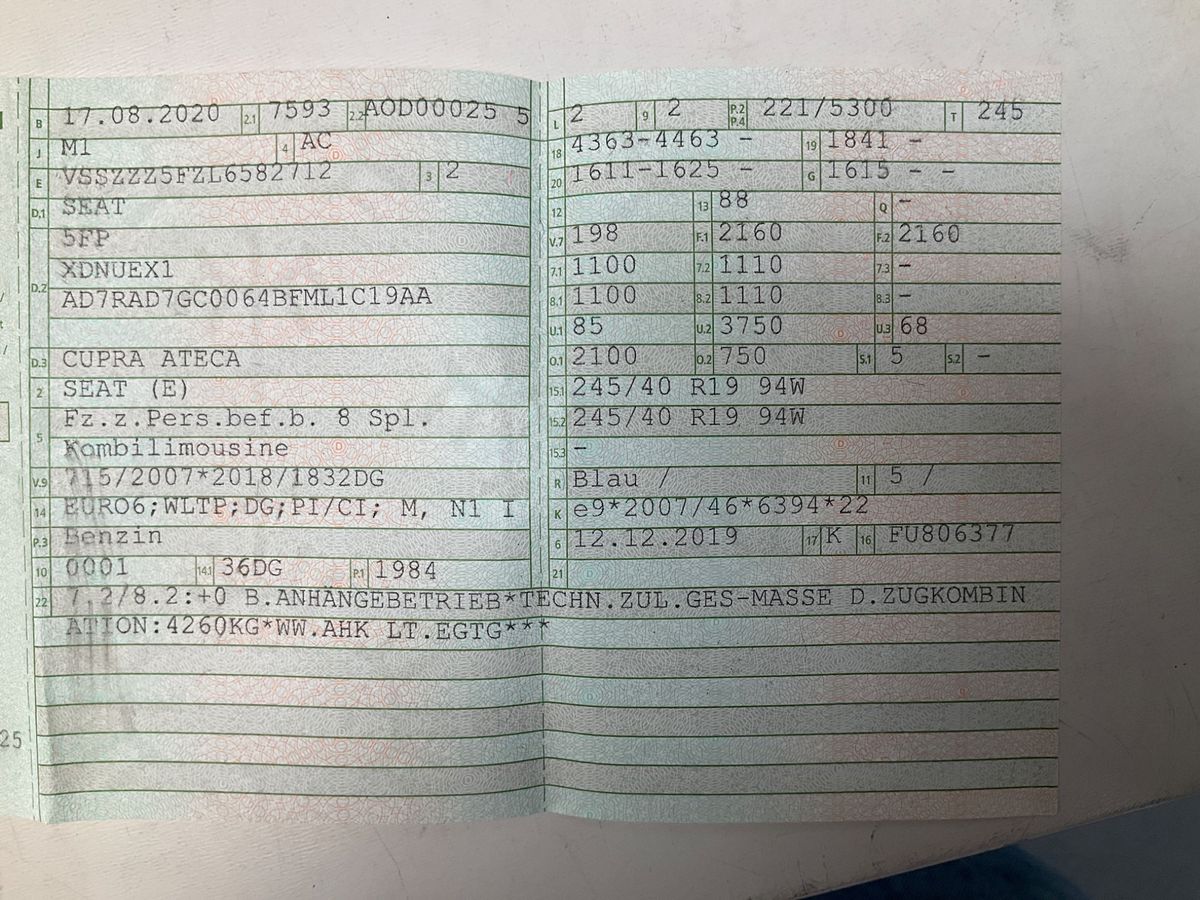 B 17.08.2020 2.1 7593 2.2 AOD00025 5
J M1 4 AC
E VSSZZZ5FZL6582712 3 2
D.1 SEAT
5FP
D.2 XDNUEX1
AD7RAD7GC0064BFML1C19AA
D.3 CUPRA ATECA
2 SEAT (E)
5 Fz.z.Pers.bef.b. 8 Spl.
Kombilimousine
V.9 715/2007*2018/1832DG
14 EURO6;WLTP;DG;PI/CI; M, N1 I
P.3 Benzin
10 0001 14.1 36DG P.1 1984
L 2 9 2 P.2 P.4 221/5300 T 245
18 4363-4463 - 19 1841 -
20 1611-1625 - G 1615 - -
12 13 88 Q -
V.7 198 F.1 2160 F.2 2160
7.1 1100 7.2 1110 7.3 -
8.1 1100 8.2 1110 8.3 -
U.1 85 U.2 3750 U.3 68
O.1 2100 O.2 750 S.1 5 S.2 -
15.1 245/40 R19 94W
15.2 245/40 R19 94W
15.3 -
R Blau / 11 5 /
K e9*2007/46*6394*22
6 12.12.2019 17 K 16 FU806377
21
22 7.2/8.2:+0 B.ANHÄNGEBETRIEB*TECHN.ZUL.GES-MASSE D.ZUGKOMBIN
ATION:4260KG*WW.AHK LT.EGTG***
25